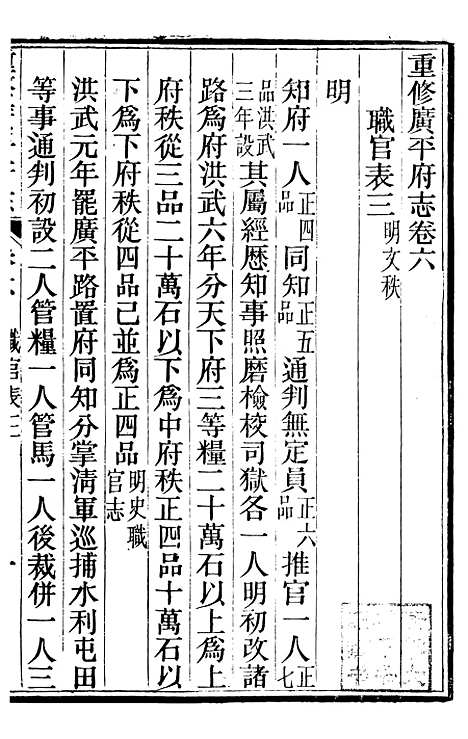 重修廣平府志卷六
職官表三明文秩
明
知府一人正四品同知正五品通判無定員正六品推官一人正七
品洪武三年設其屬經歷知事照磨檢校司獄各一人明初改諸
路爲府洪武六年分天下府三等糧二十萬石以上爲上
府秩從三品二十萬石以下爲中府秩正四品十萬石以
下爲下府秩從四品已並爲正四品明史職官志
洪武元年罷廣平路置府同知分掌淸軍巡捕水利屯田
等事通判初設二人管糧一人管馬一人後裁併一人三
職官表三
一